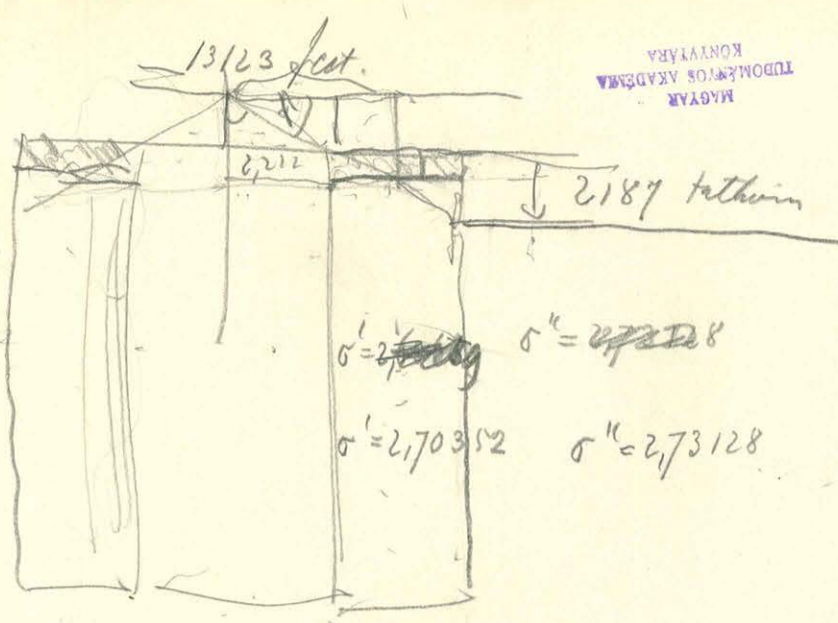 13123 feet.
MAGYAR
TUDOMÁNYOS AKADÉMIA
KÖNYVTÁRA
2,212
2187
σ' = 2,
σ" =
σ' = 2,70352
σ" = 2,73128